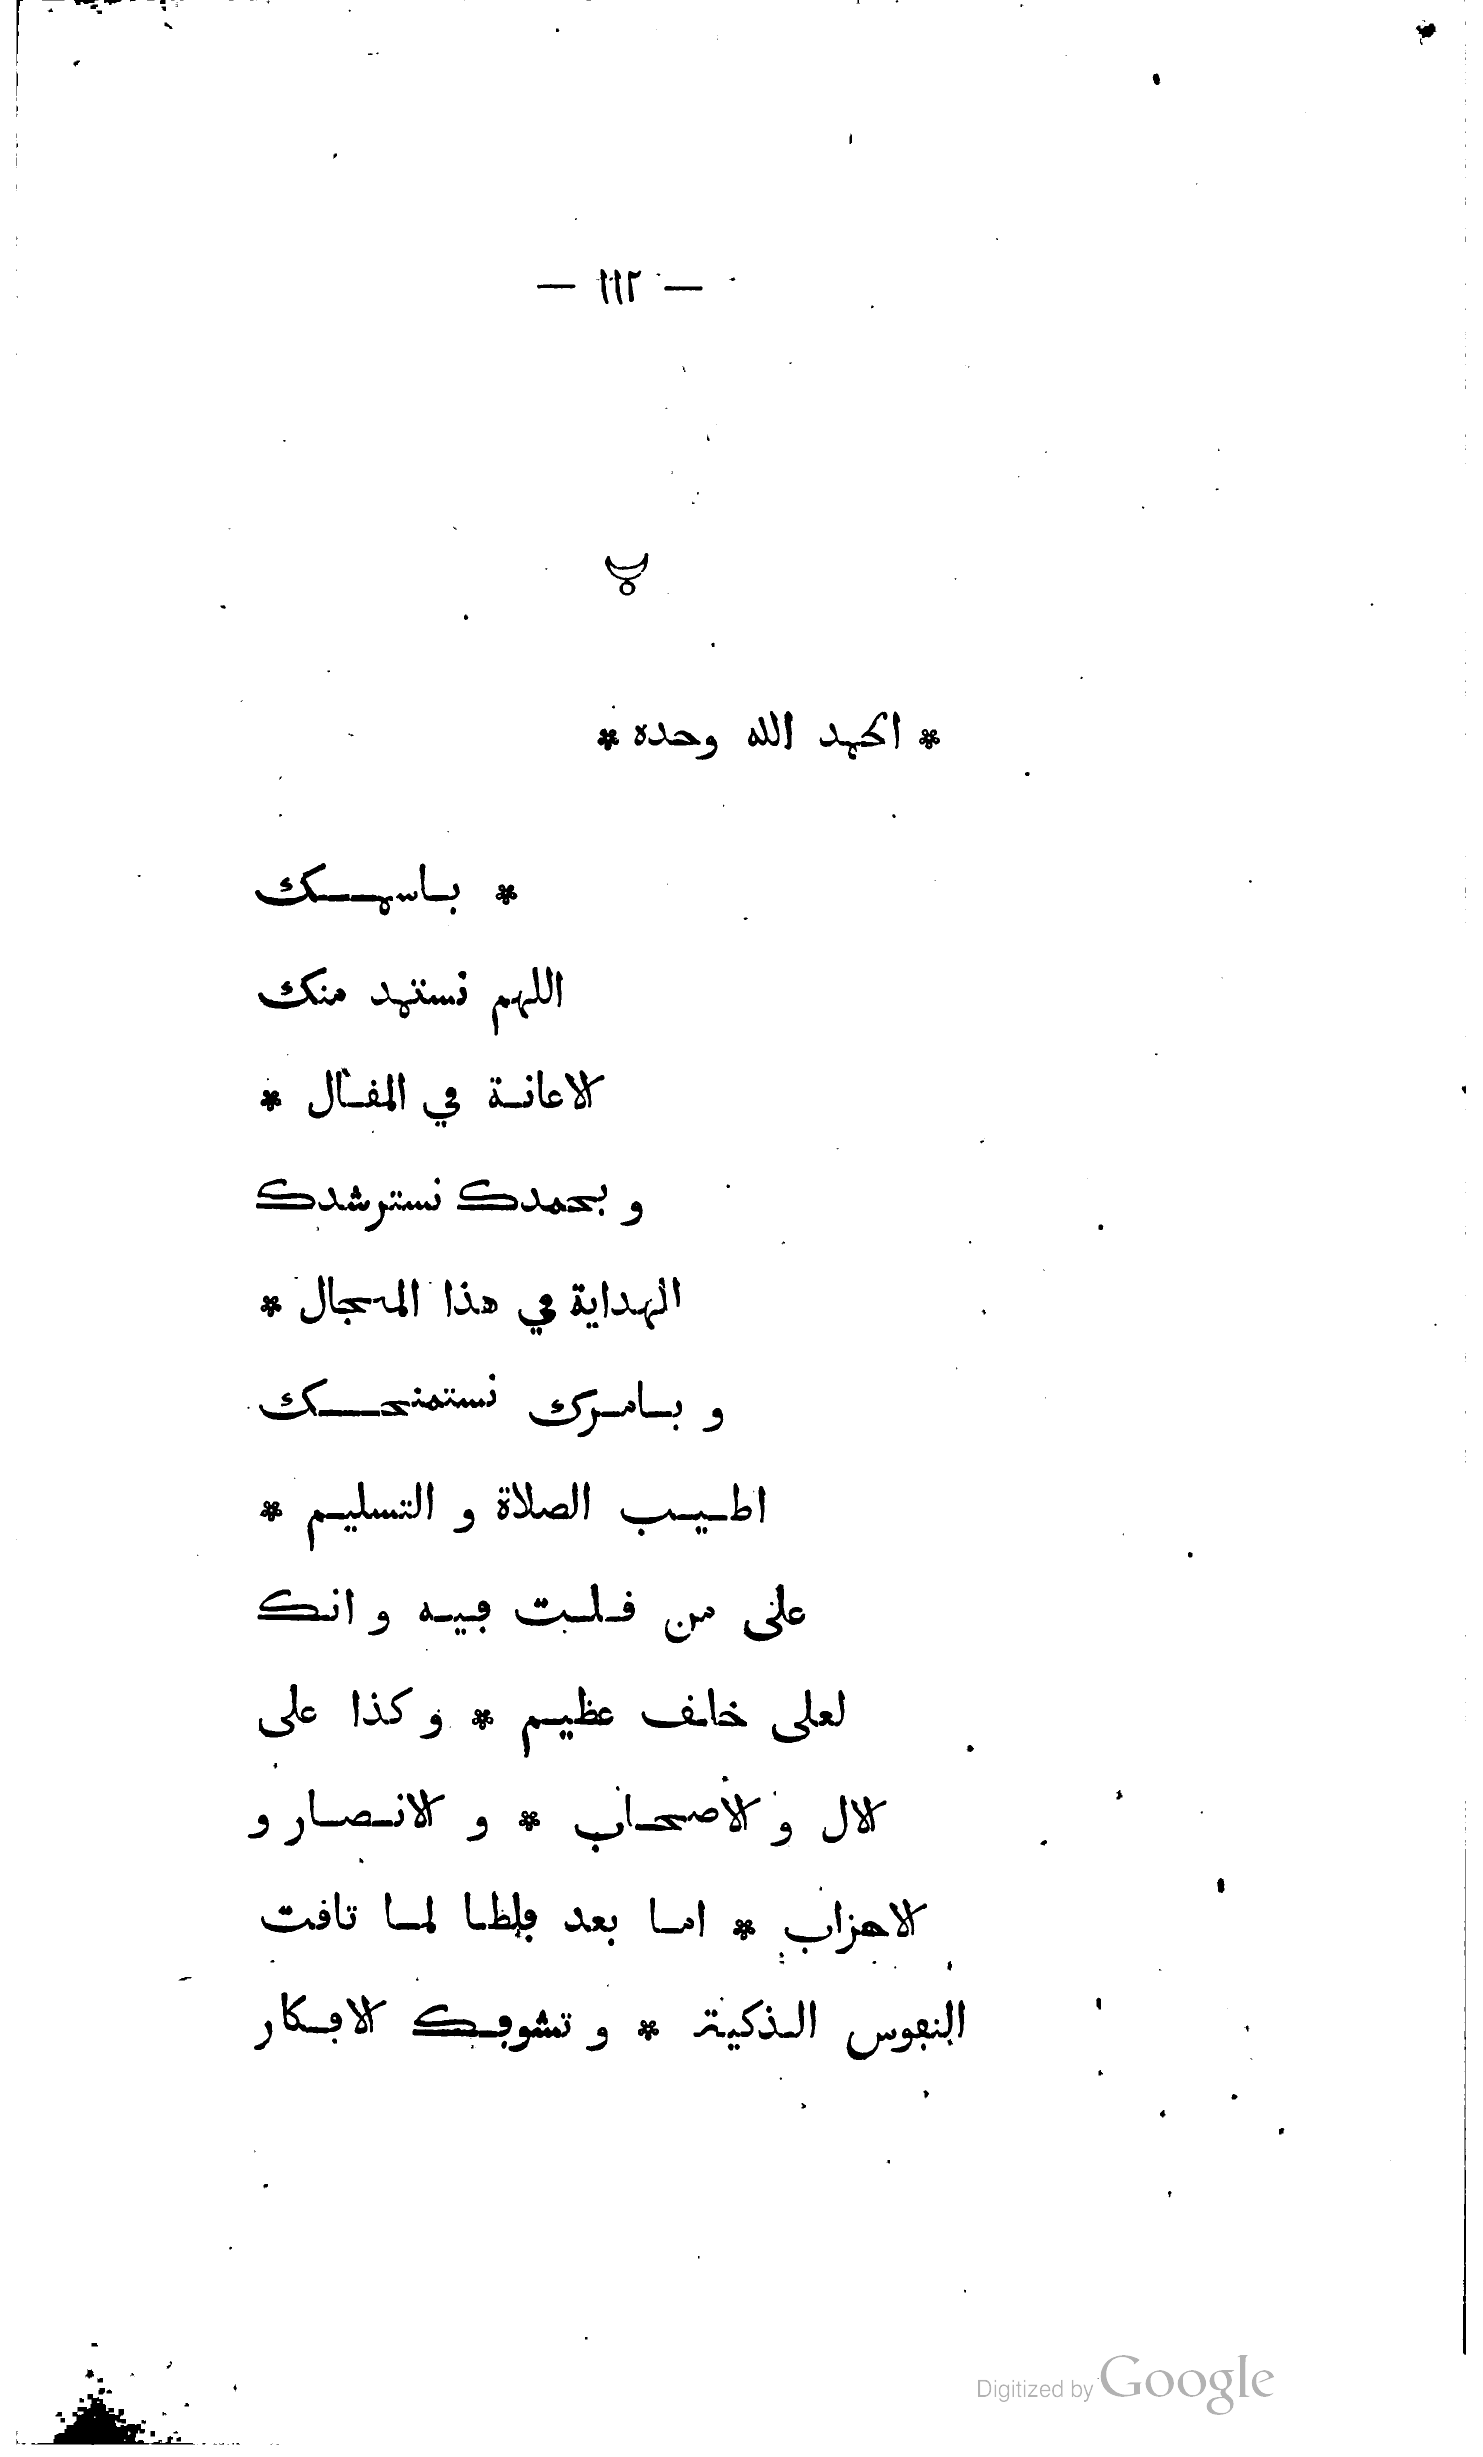 — ١١٢ —
* الحمد الله وحده *
* باسمك
اللهم نستمد منك
الاعانة في المقال *
و بحمدك نسترشدك
الهداية في هذا المجال *
و بامرك نستمنحك
اطيب الصلاة و التسليم *
على من قلت فيه و انك
لعلى خلق عظيم * و كذا على
الال و الاصحاب * و الانصار و
الاحزاب * اما بعد فلطا لما تاقت
النفوس الذكية * و تشوفك الافكار
Digitized by Google